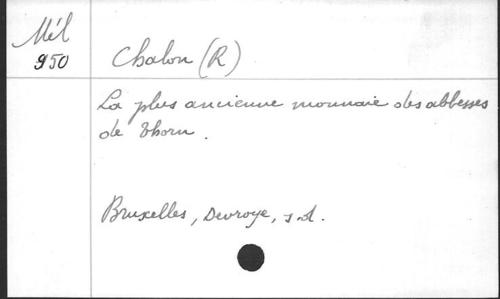 Mél
950
Chalon (R)
La plus ancienne monnaie des abbesses
de Thorn.
Bruxelles, Devroye, s.d.